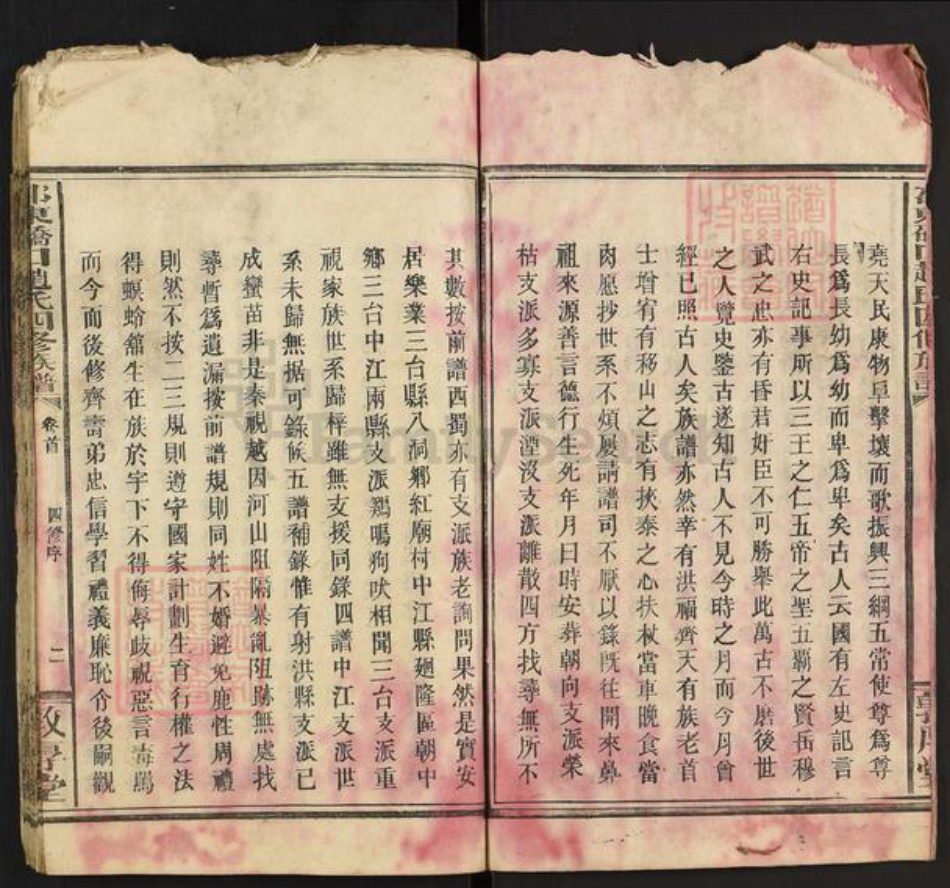 堯天民康物阜擊壤而歌振興三綱五常使尊爲尊
長爲長幼爲幼而卑爲卑矣古人云國有左史記言
右史記事所以三王之仁五帝之聖五霸之賢岳穆
武之忠亦有昏君奸臣不可勝舉此萬古不磨後世
之人覽史鑒古遂知古人不見今時之月而今月曾
經已照古人矣族譜亦然幸有洪福齊天有族老首
士增宥有移山之志有挾泰之心扶杖當車晚食當
肉愿抄世系不煩屡請譜司不厭以錄既往開來鼻
祖來源善言德行生死年月日時安葬朝向支派榮
枯支派多寡支派湮沒支派離散四方找尋無所不
其數按前譜西蜀亦有支派族老詢問果然是實安
居樂業三台縣八洞鄉紅廟村中江縣廻隆區朝中
鄉三台中江兩縣支派鷄鳴狗吠相聞三台支派重
視家族世系歸梓雖無支援同錄四譜中江支派世
系未歸無据可錄候五譜補錄惟有射洪縣支派已
成蠻苗非是秦視越因河山阻隔暴亂阻跡無處找
尋暫爲遺漏按前譜規則同姓不婚避免鹿性周禮
則然不按二三規則遵守國家計劃生育行權之法
得螟蛉舘生在族於宇下不得侮辱歧視惡言毒罵
而今而後修齊壽弟忠信學習禮義廉恥令後嗣觀
東僑口趙氏四修族譜
卷首
四修序
二
敦厚堂
FamilySearch